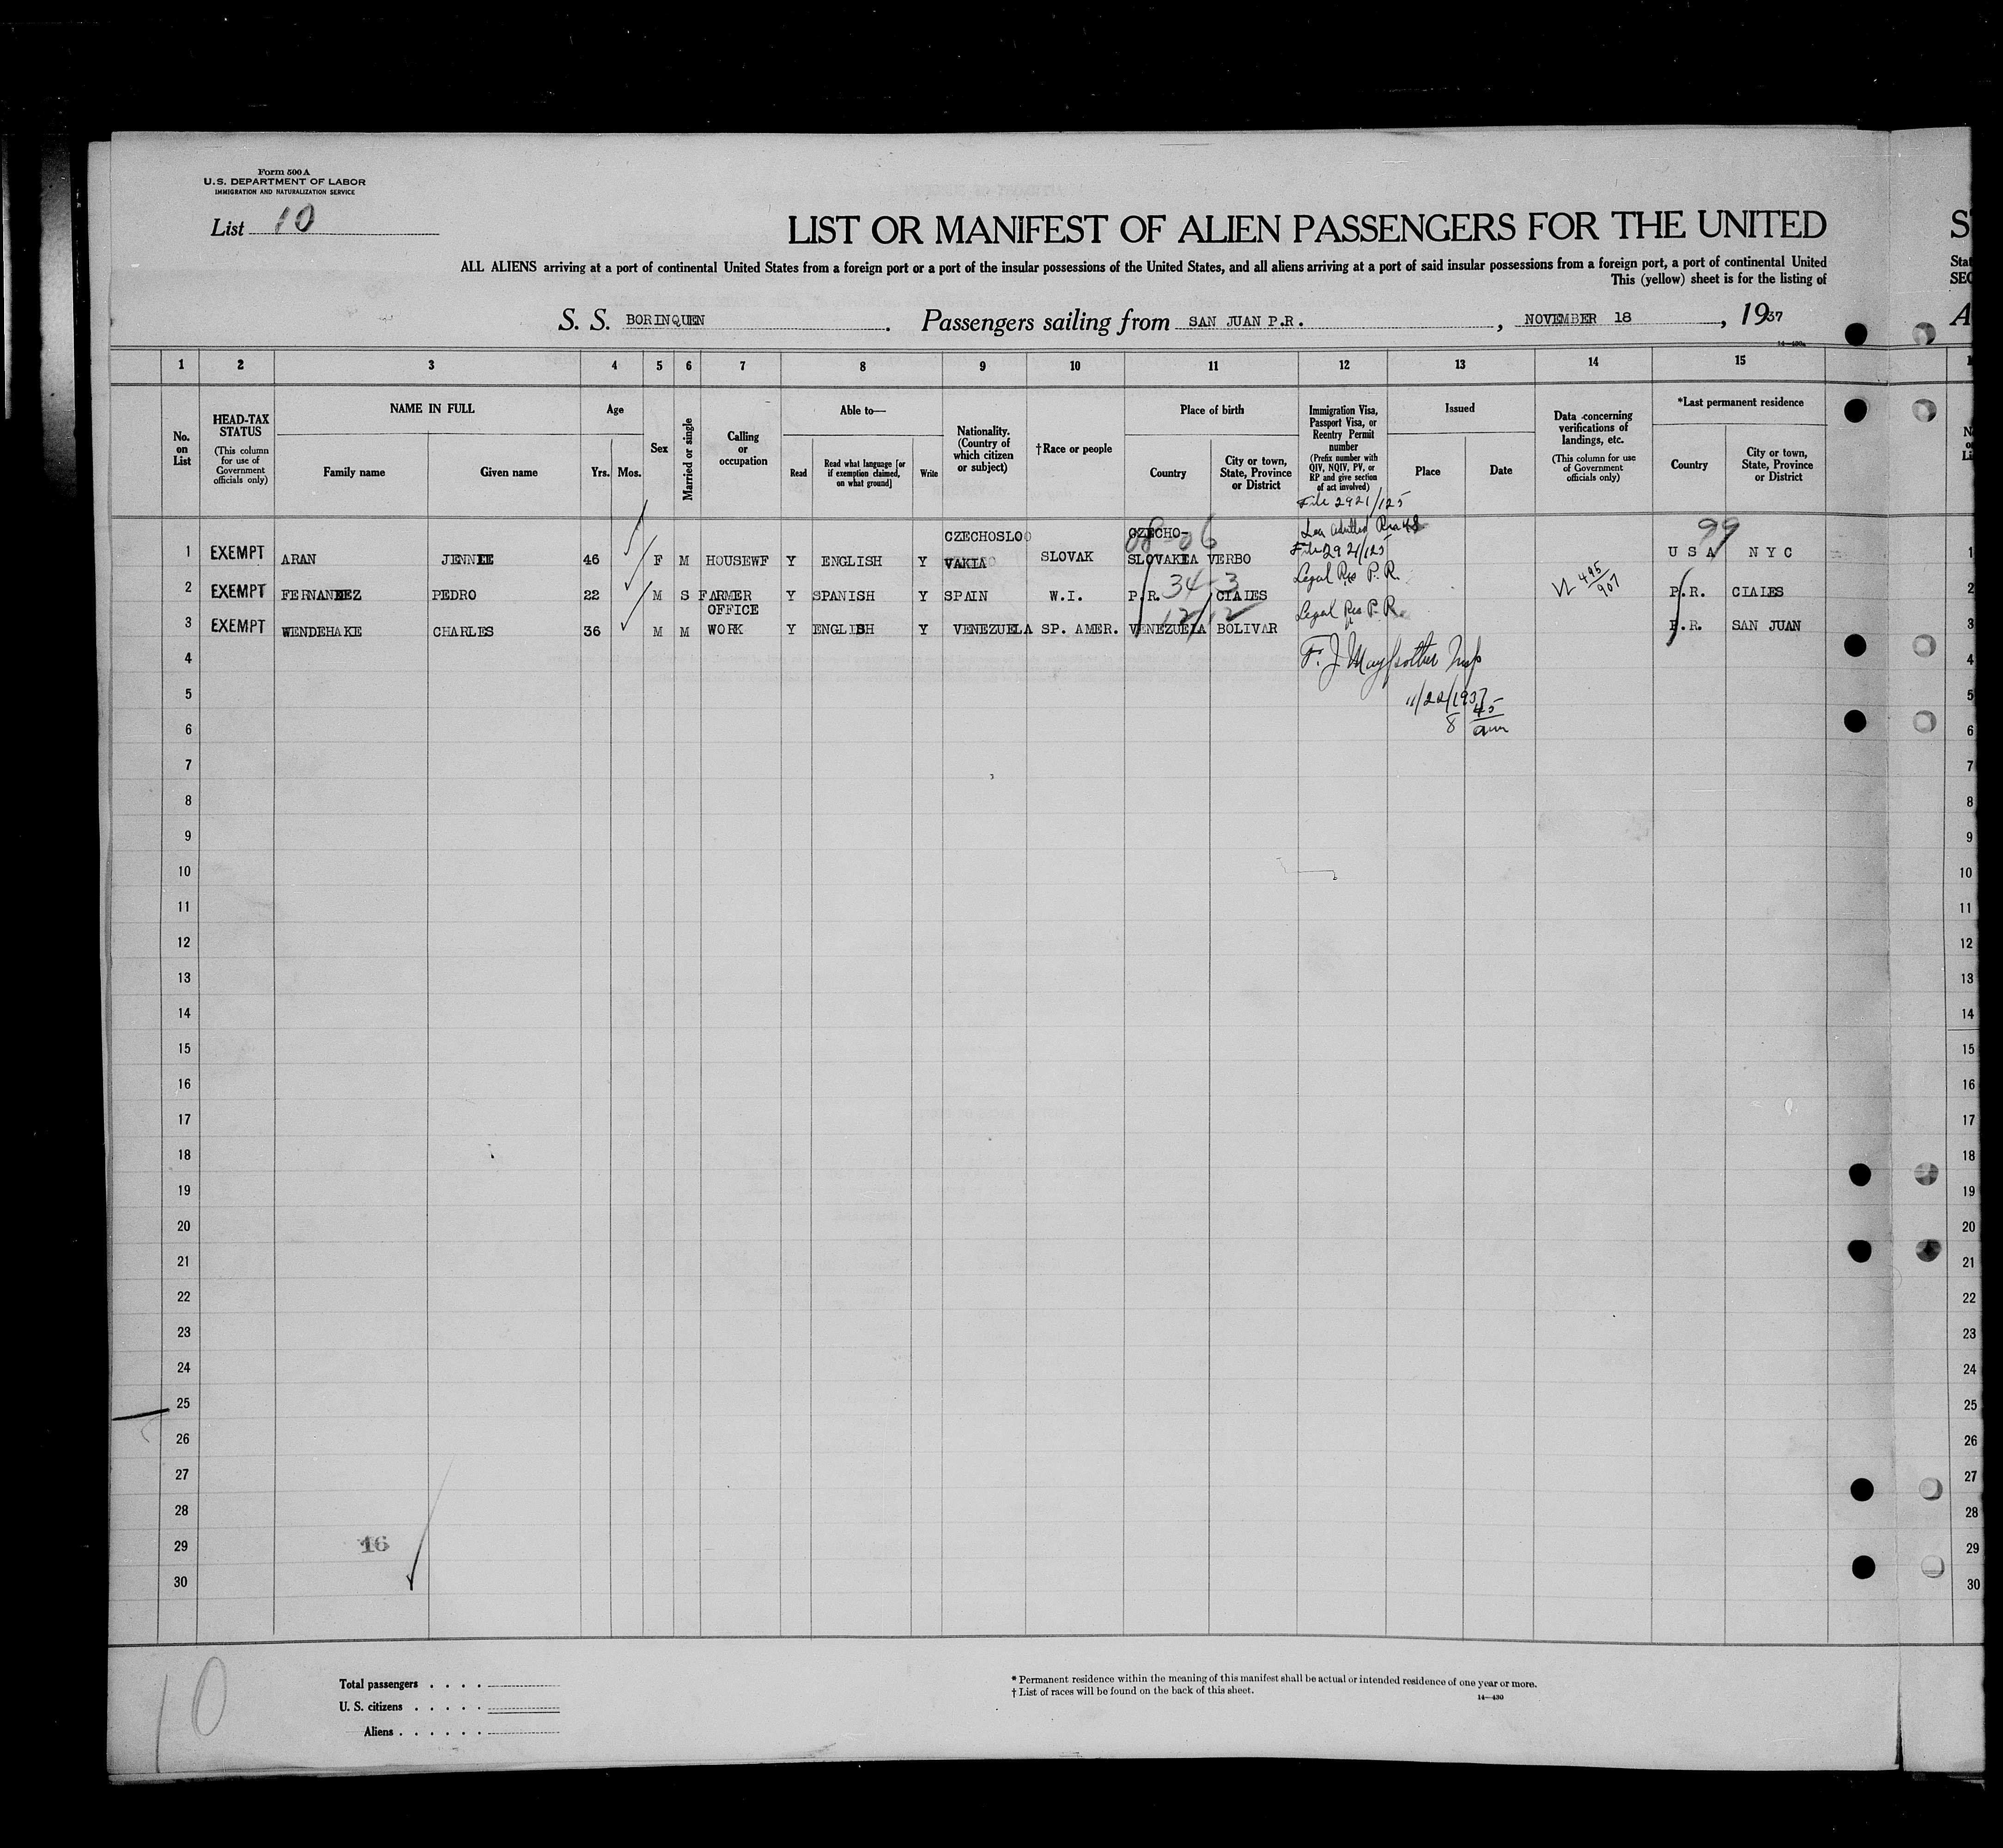 Form 500 A
U.S. DEPARTMENT OF LABOR
IMMIGRATION AND NATURALIZATION SERVICE
List 10
LIST OR MANIFEST OF ALIEN PASSENGERS FOR THE UNITED
ALL ALIENS arriving at a port of continental United States from a foreign port or a port of the insular possessions of the United States, and all aliens arriving at a port of said insular possessions from a foreign port, a port of continental United
This (yellow) sheet is for the listing of
S. S. BORINQUEN. Passengers sailing from SAN JUAN P.R., NOVEMBER 18, 1937
1 2 3 4 5 6 7 8 9 10 11 12 13 14 15
No. on List
HEAD-TAX STATUS (This column for use of Government officials only)
NAME IN FULL
Family name Given name
Age
Yrs. Mos.
Sex
Married or single
Calling or occupation
Able to—
Read Read what language [or if exemption claimed, on what ground] Write
Nationality. (Country of which citizen or subject)
†Race or people
Place of birth
Country City or town, State, Province or District
Immigration Visa, Passport Visa, or Reentry Permit number (Prefix number with QIV, NQIV, PV, or RP and give section of act involved)
Issued
Place Date
Data concerning verifications of landings, etc. (This column for use of Government officials only)
*Last permanent residence
Country City or town, State, Province or District
File 2921/125
08-06
99
1 EXEMPT ARAN JENNIE 46 F M HOUSEWF Y ENGLISH Y CZECHOSLO VAKIA SLOVAK CZECHO- SLOVAKIA VERBO File 2921/125 U S A N Y C
34-3
2 EXEMPT FERNANDEZ PEDRO 22 M S FARMER Y SPANISH Y SPAIN W.I. P.R. CIAIES Legal Res P.R. 495/907 P.R. CIAIES
12/12
3 EXEMPT WENDEHAKE CHARLES 36 M M OFFICE WORK Y ENGLISH Y VENEZUELA SP. AMER. VENEZUELA BOLIVAR Legal Res P.R. P.R. SAN JUAN
4
5
11/22/1937
6
8 45 am
7
8
9
10
11
12
13
14
15
16
17
18
19
20
21
22
23
24
25
26
27
28
29
16
30
10
Total passengers
U. S. citizens
Aliens
* Permanent residence within the meaning of this manifest shall be actual or intended residence of one year or more.
† List of races will be found on the back of this sheet.
14—430